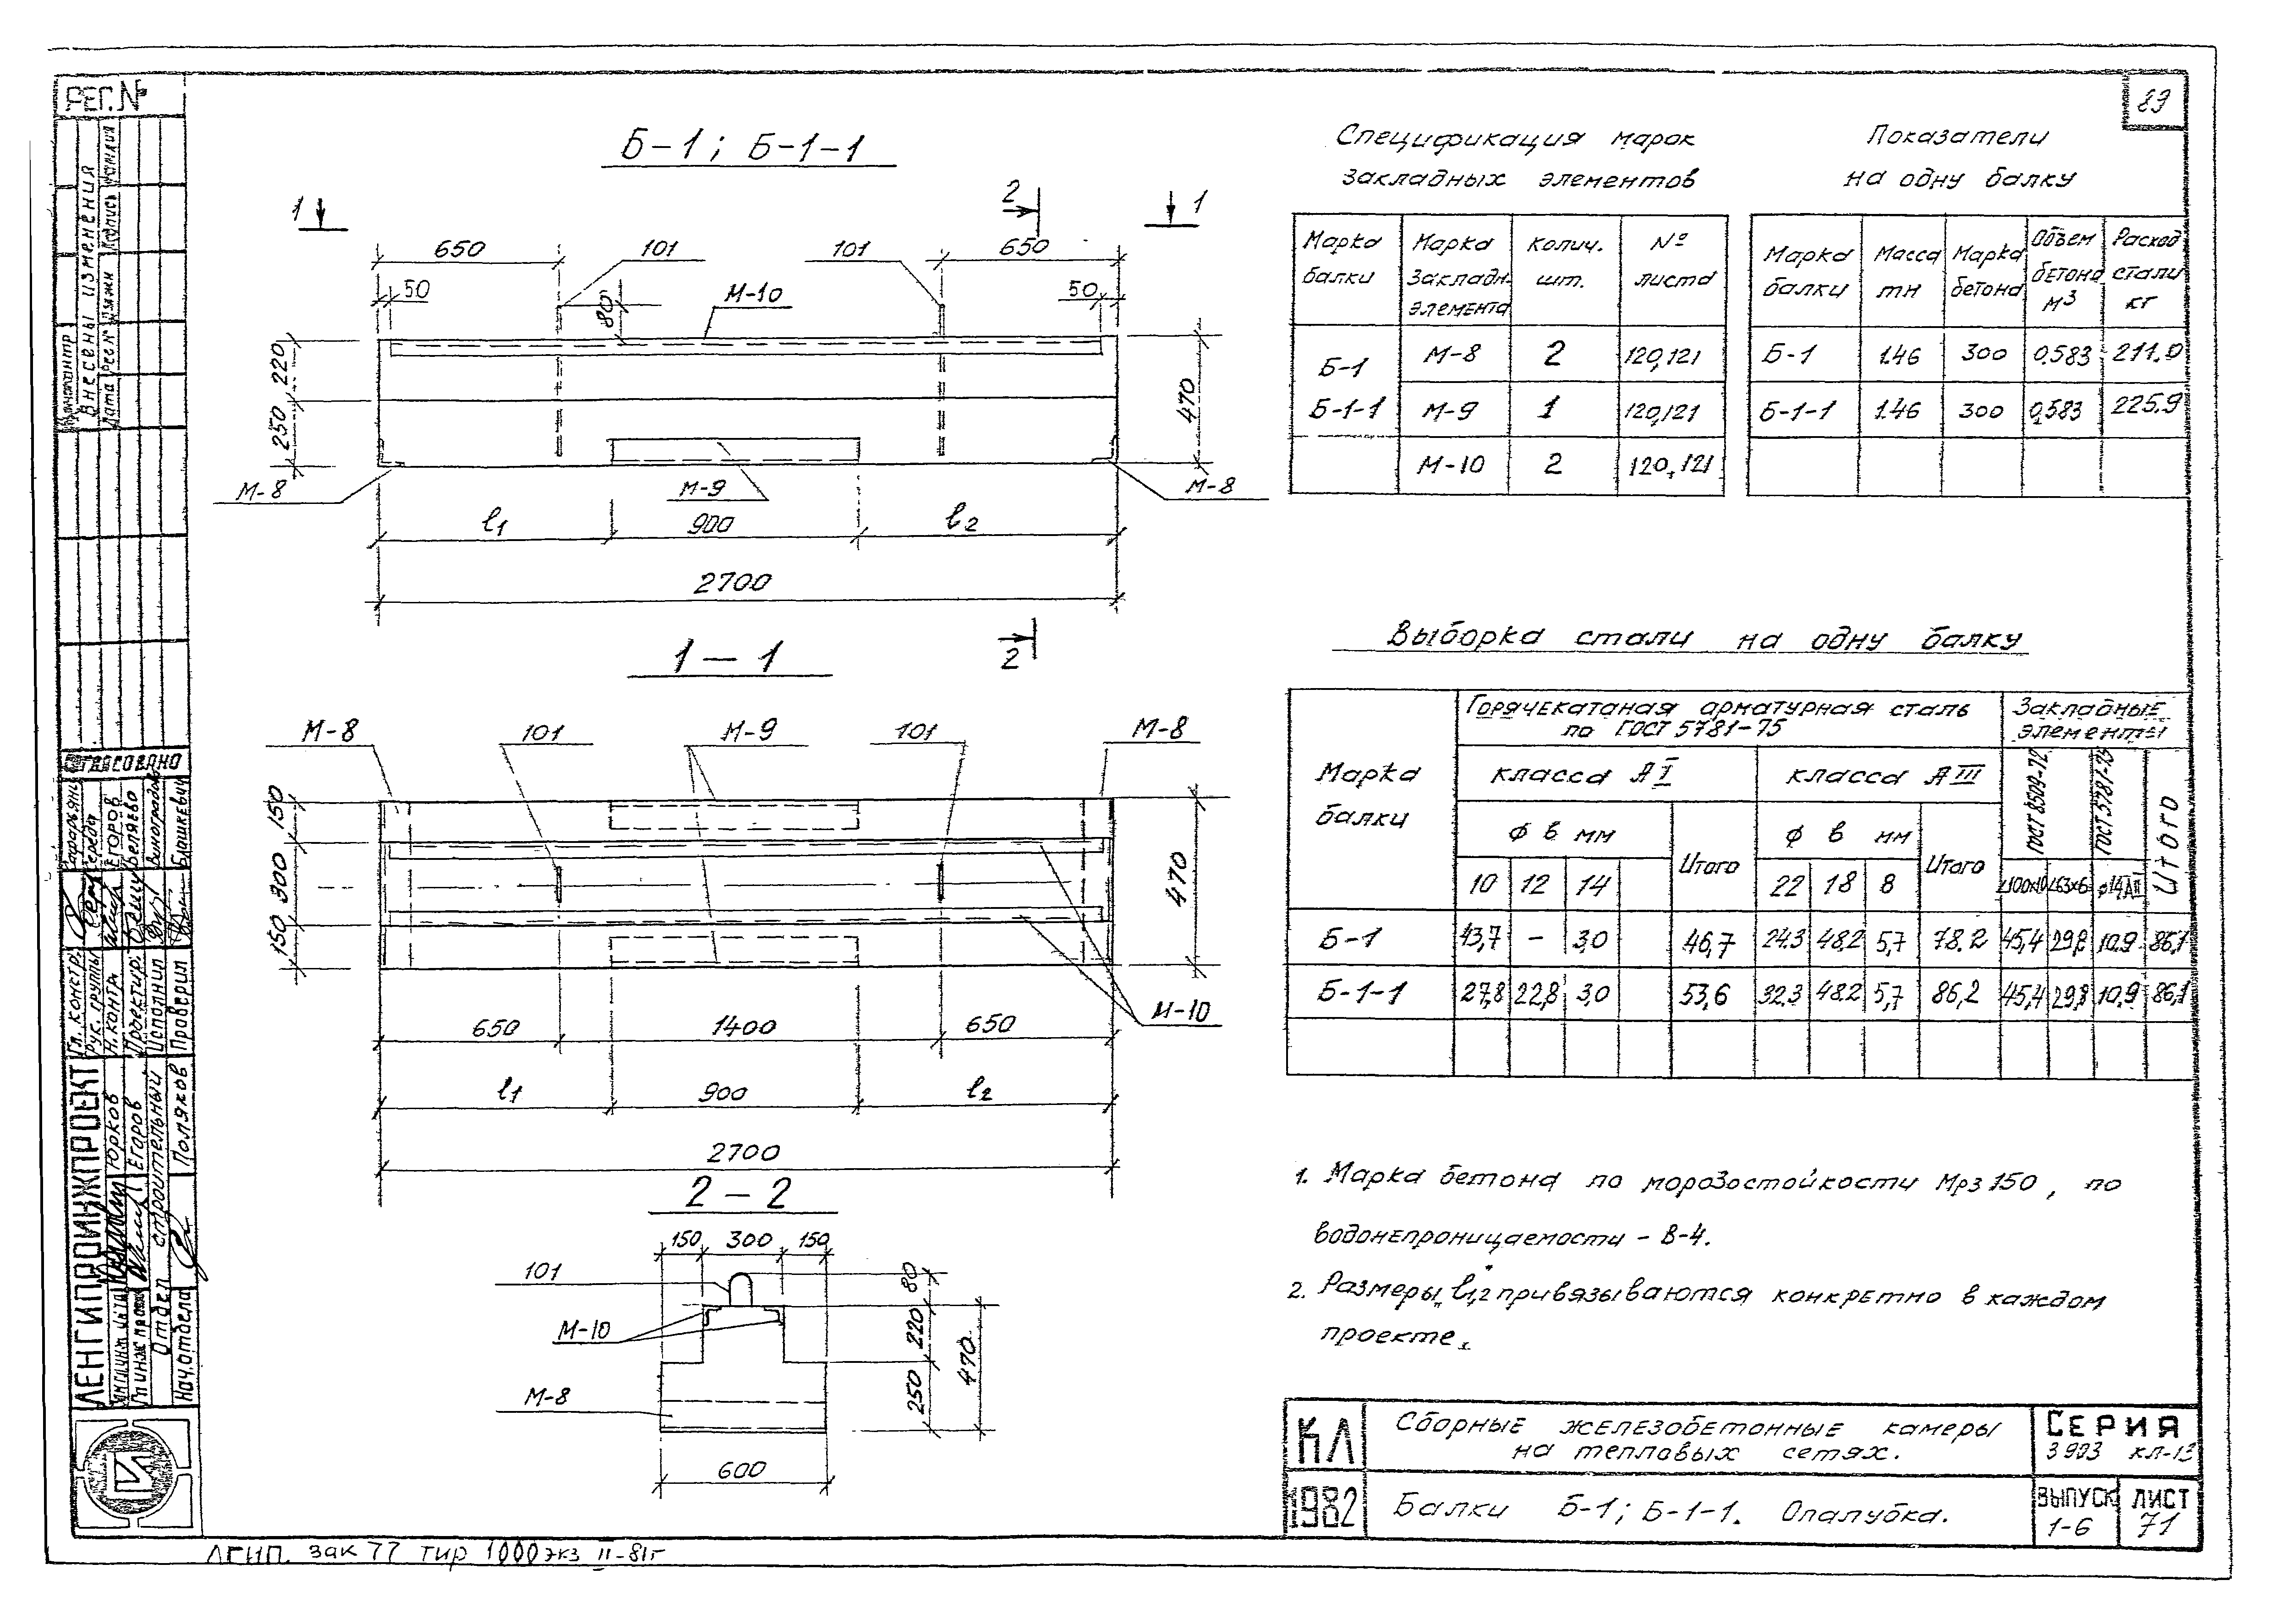 89
РЕГ.№
Внесены изменения
Дата
Рег №
Подпись
Согласовано
Егоров
Беляево
Виноградов
Блашкевич
Гл. констр.
Рук. группы
Н. контр
Проектир.
Исполнил
Проверил
ЛЕНГИПРОИНЖПРОЕКТ
Юрков
Егоров
Отдел строительный
Нач. отдела
Поляков
Б-1; Б-1-1
1
2
1
650
101
101
650
50
80
М-10
50
220
250
470
М-8
М-9
М-8
l1
900
l2
2700
2
1-1
М-8
101
М-9
101
М-8
150
300
150
470
М-10
650
1400
650
l1
900
l2
2700
2-2
150
300
150
101
М-10
М-8
80
220
250
470
600
Спецификация марок
закладных элементов
Марка балки | Марка закладн. элемента | Колич. шт. | № листа
Б-1 | М-8 | 2 | 120,121
Б-1-1 | М-9 | 1 | 120,121
М-10 | 2 | 120,121
Показатели
на одну балку
Марка балки | Масса тн | Марка бетона | Объем бетона м3 | Расход стали кг
Б-1 | 1.46 | 300 | 0.583 | 211.0
Б-1-1 | 1.46 | 300 | 0.583 | 225.9
Выборка стали на одну балку
Марка балки
Горячекатаная арматурная сталь
по ГОСТ 5781-75
Закладные
элементы
класса А I | класса А III
ГОСТ 8509-72 | ГОСТ 5781-75 | Итого
ф в мм | Итого | ф в мм | Итого
10 | 12 | 14 | 22 | 18 | 8 | L100х10 | L63х6 | ф14АIII
Б-1 | 43,7 | - | 3.0 | 46,7 | 24.3 | 48.2 | 5,7 | 78.2 | 45,4 | 29,8 | 10.9 | 86,1
Б-1-1 | 27,8 | 22,8 | 3,0 | 53,6 | 32.3 | 48.2 | 5,7 | 86,2 | 45,4 | 29,8 | 10,9 | 86,1
1. Марка бетона по морозостойкости Мрз 150, по
водонепроницаемости - В-4.
2. Размеры l1,2 привязываются конкретно в каждом
проекте.
КЛ
Сборные железобетонные камеры
на тепловых сетях.
СЕРИЯ
3 903 КЛ-13
1982
Балки Б-1; Б-1-1. Опалубка.
ВЫПУСК
1-6
ЛИСТ
71
ЛГИП. зак 77 тир 1000 экз II-81г